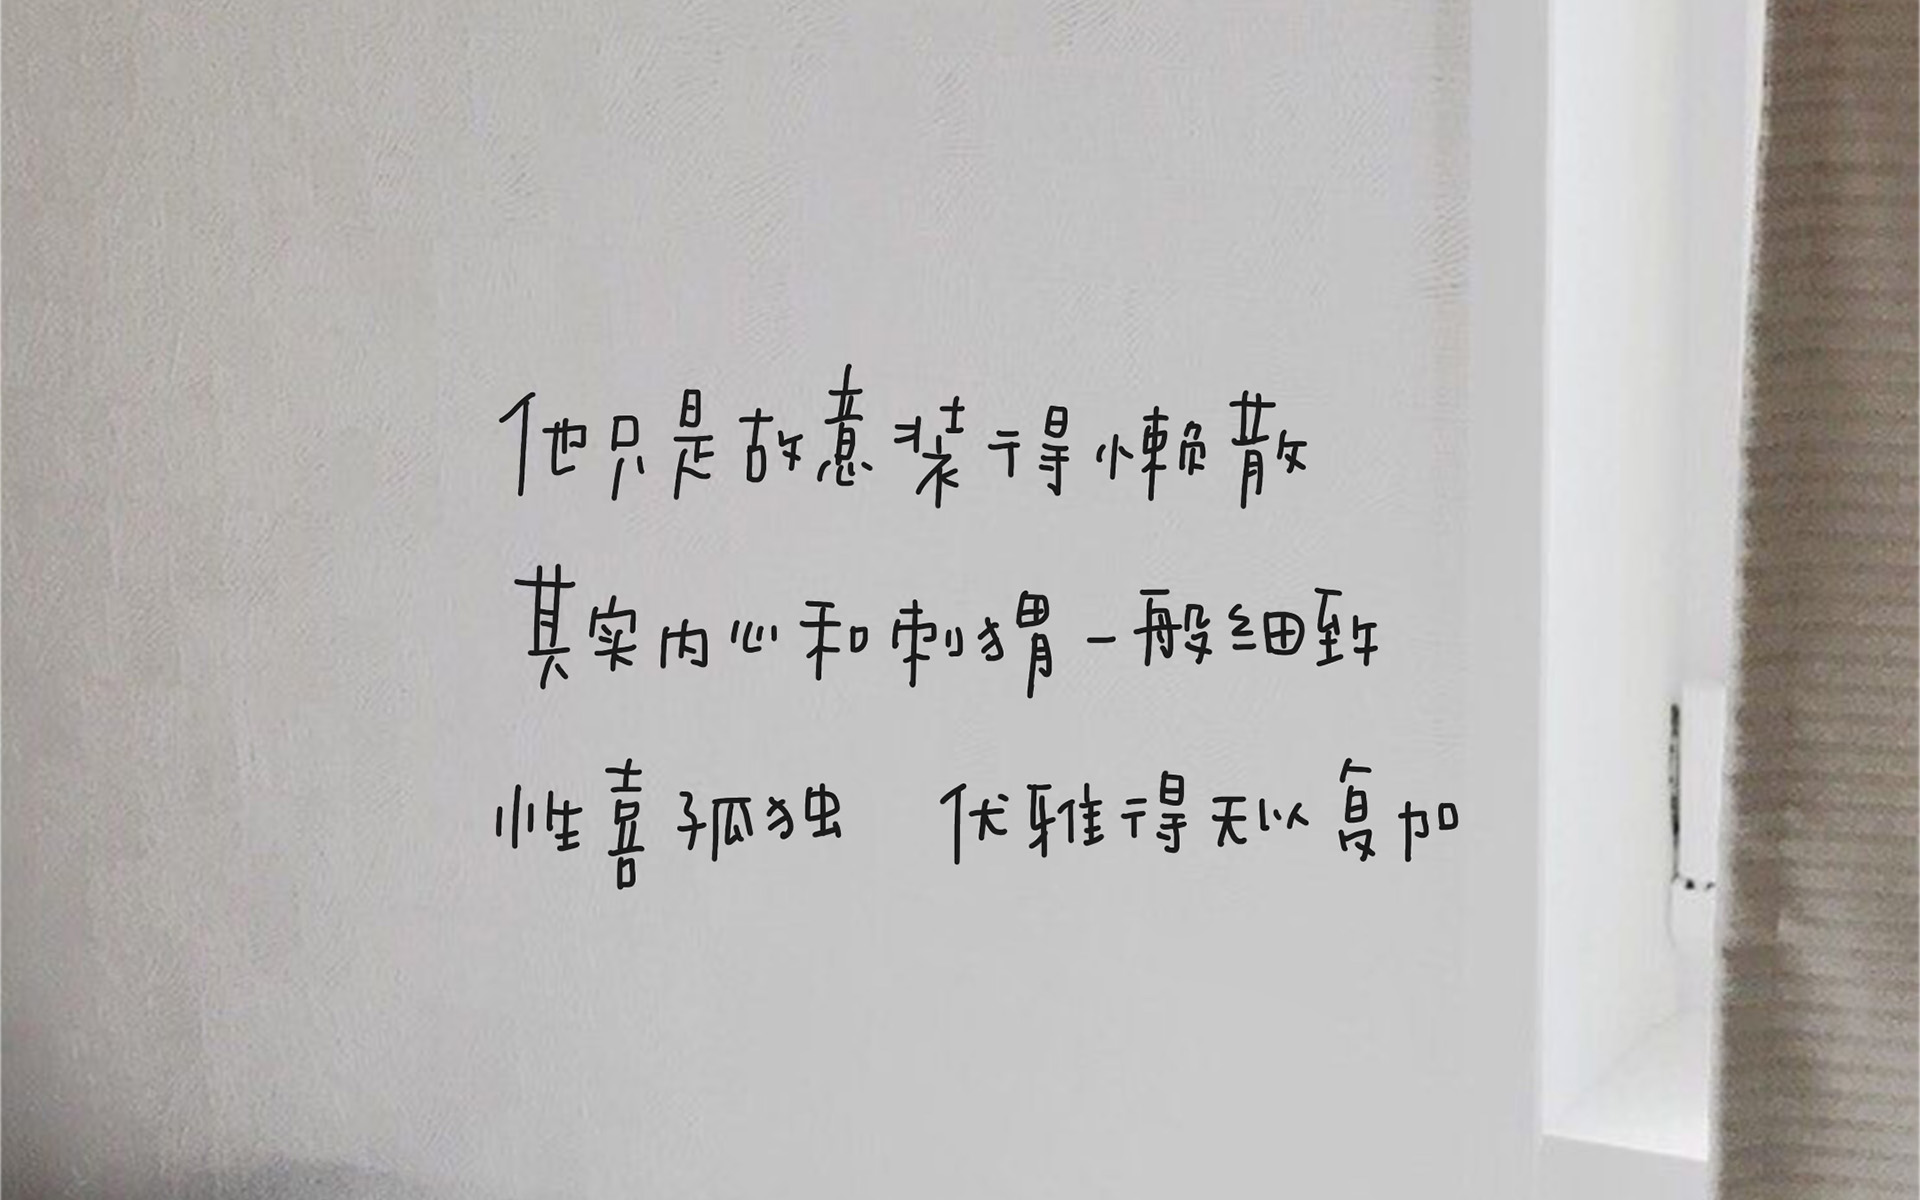 他只是故意装得懒散
其实内心和刺猬一般细致
性喜孤独 优雅得无以复加